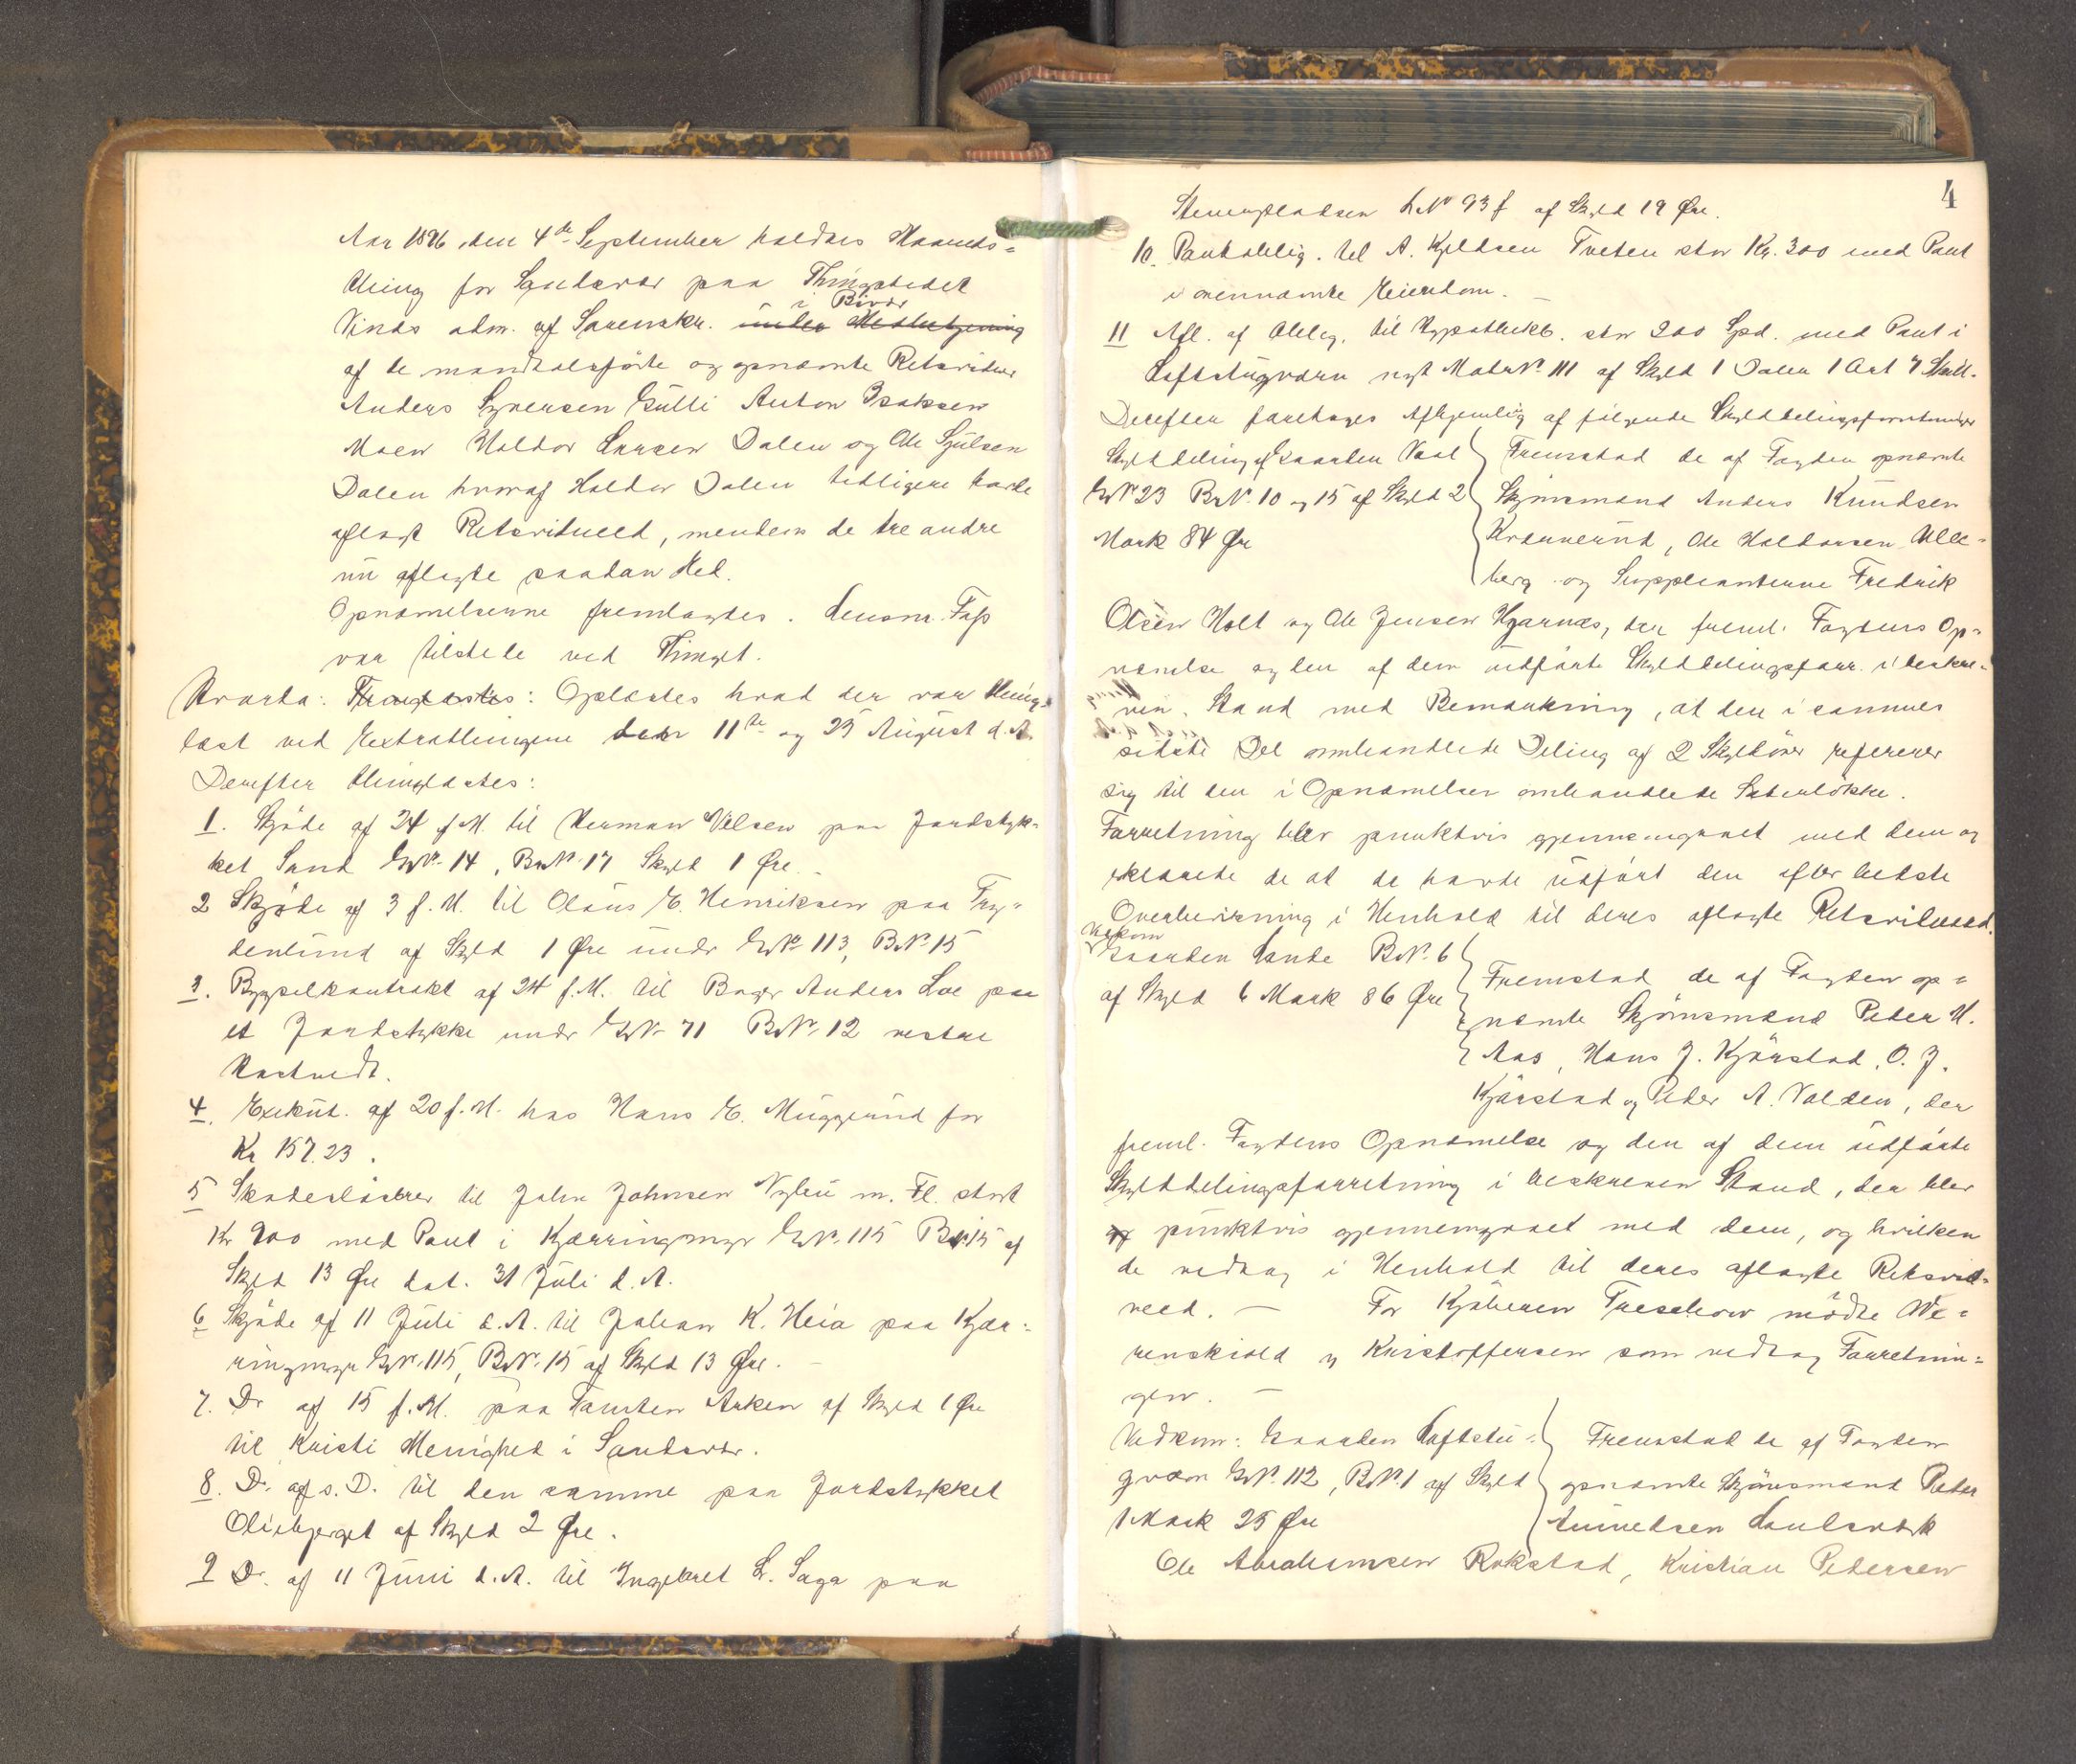 Aar 1896 den 4de September holdtes Maaneds=
thing for Sandsvær paa Thingstedet
Vinds adm. af Sorenskr. under Medbetjening
i Bivær
af de mandtalsførte og opnævnte Retsvidner
Anders Syversen Gulli Anton Isaksen
Moen Haldor Larsen Dalen og Ole Sjulsen
Dalen hvoraf Haldor Dalen tidligere havde
aflagt Retsvidneed, mendens de tre andre
nu aflagde saadan Ed.
Opnævnelserne fremlagdes. Lensm. Fass
var tilstede ved Thinget.
Hvorda: Fremlagdes: Oplæstes hvad der var thing=
læst ved Extrathingene den 11te og 25 August d. A.
Derefter thinglæstes:
1. Skjøde af 24 f. M. til Herman Nilsen paa Jordstyk=
ket Sand GNr. 14, BrNr. 17 Skyld 1 Øre.
2 Skjøde af 3 f. M. til Olaus E. Henriksen paa Fry=
denlund af Skyld 1 Øre under GNr. 113, BNr. 15
3. Bygselkontrakt af 24 f. M. til Bager Anders Loe paa
et Jordstykke under GNr. 71 BNr. 12 vestre
Hostvedt.
4. Exekut. af 20 f. M. hos Hans E. Muggerud for
Kr 157.23.
5 Skadesløsbrev til John Johnsen Nybu m. Fl. stort
Kr 900 med Pant i Kjærringmyr GNr. 115 BNr 15 af
Skyld 13 Øre dat. 31 Juli d. A.
6 Skjøde af 11 Juli d. A. til Johan K. Heia paa Kjær=
ringmyr GNr. 115, BNr. 15 af Skyld 13 Øre. —
7. Do af 15 f. M. paa Tomten Arken af Skyld 1 Øre
til Kristi Menighed i Sandsvær.
8. Do. af s. D. til den samme paa Jordstykket
Oliebjerget af Skyld 2 Øre.
9 Do. af 11 Juni d. A. til Ingebret L. Saga paa
4
Stenspladsen LNr 93 f af Skyld 19 Øre.
10. Pantoblig. til A. Kjeldsen Tveten stor Kr. 300 med Pant
i ovennævnte Eiendom. —
11 Afl. af Oblig. til Hypothekb. stor 200 Spd. med Pant i
Loftstugværn nyt MatrNr. 111 af Skyld 1 Daler 1 Ort 7 Skill.
Derefter foretoges Afhjemling af følgende Skylddelingsforretninger
Skylddeling af Gaarden Vaal
GNr 23 BrNr. 10 og 15 af Skyld 2
Mark 84 Øre
Fremstod de af Fogden opnævnte
Skjønsmænd Anders Knudsen
Kravnerud, Ole Haldorsen Ulle=
berg og Suppleanterne Fredrik
Olsen Holt og Ole Jensen Hjarnæs, der freml. Fogdens Op=
nævnelse og den af dem udførte Skylddelingsforr. i beskre=
ven Stand med Bemærkning, at den i sammes
sidste Del omhandlede Deling af 2 Skyldører refererer
sig til den i Opnævnelsen omhandlede Sæterløkke.
Forretning blev punktvis gjennemgaaet med dem og
erklærede de at de havde udført den efter bedste
Overbevisning i Henhold til deres aflagte Retsvidneed.
Vedkom
Gaarden Lande BNr. 6
af Skyld 6 Mark 86 Øre
Fremstod de af Fogden op=
nævnte Skjønsmænd Peder H.
Aas, Hans J. Kjørstad, O. J.
Kjørstad og Peder A. Valden, der
freml. Fogdens Opnævnelse og den af dem udførte
Skylddelingsforretning i beskreven Stand, der blev
og punktvis gjennemgaaet med dem, og hvilken
de vedtog i Henhold til deres aflagte Retsvid=
need. — For Kjøberen Treschow mødte We=
renskiold og Kristoffersen som vedtog Forretnin=
gen. —
Vedkom: Gaarden Loftstu=
gværn GNr. 112, BNr. 1 af Skyld
1 Mark 25 Øre
Fremstod de af Fogden
opnævnte Skjønsmænd Peder
Amundsen Laulsværk
Ole Abrahamsen Rokstad, Kristian Pedersen